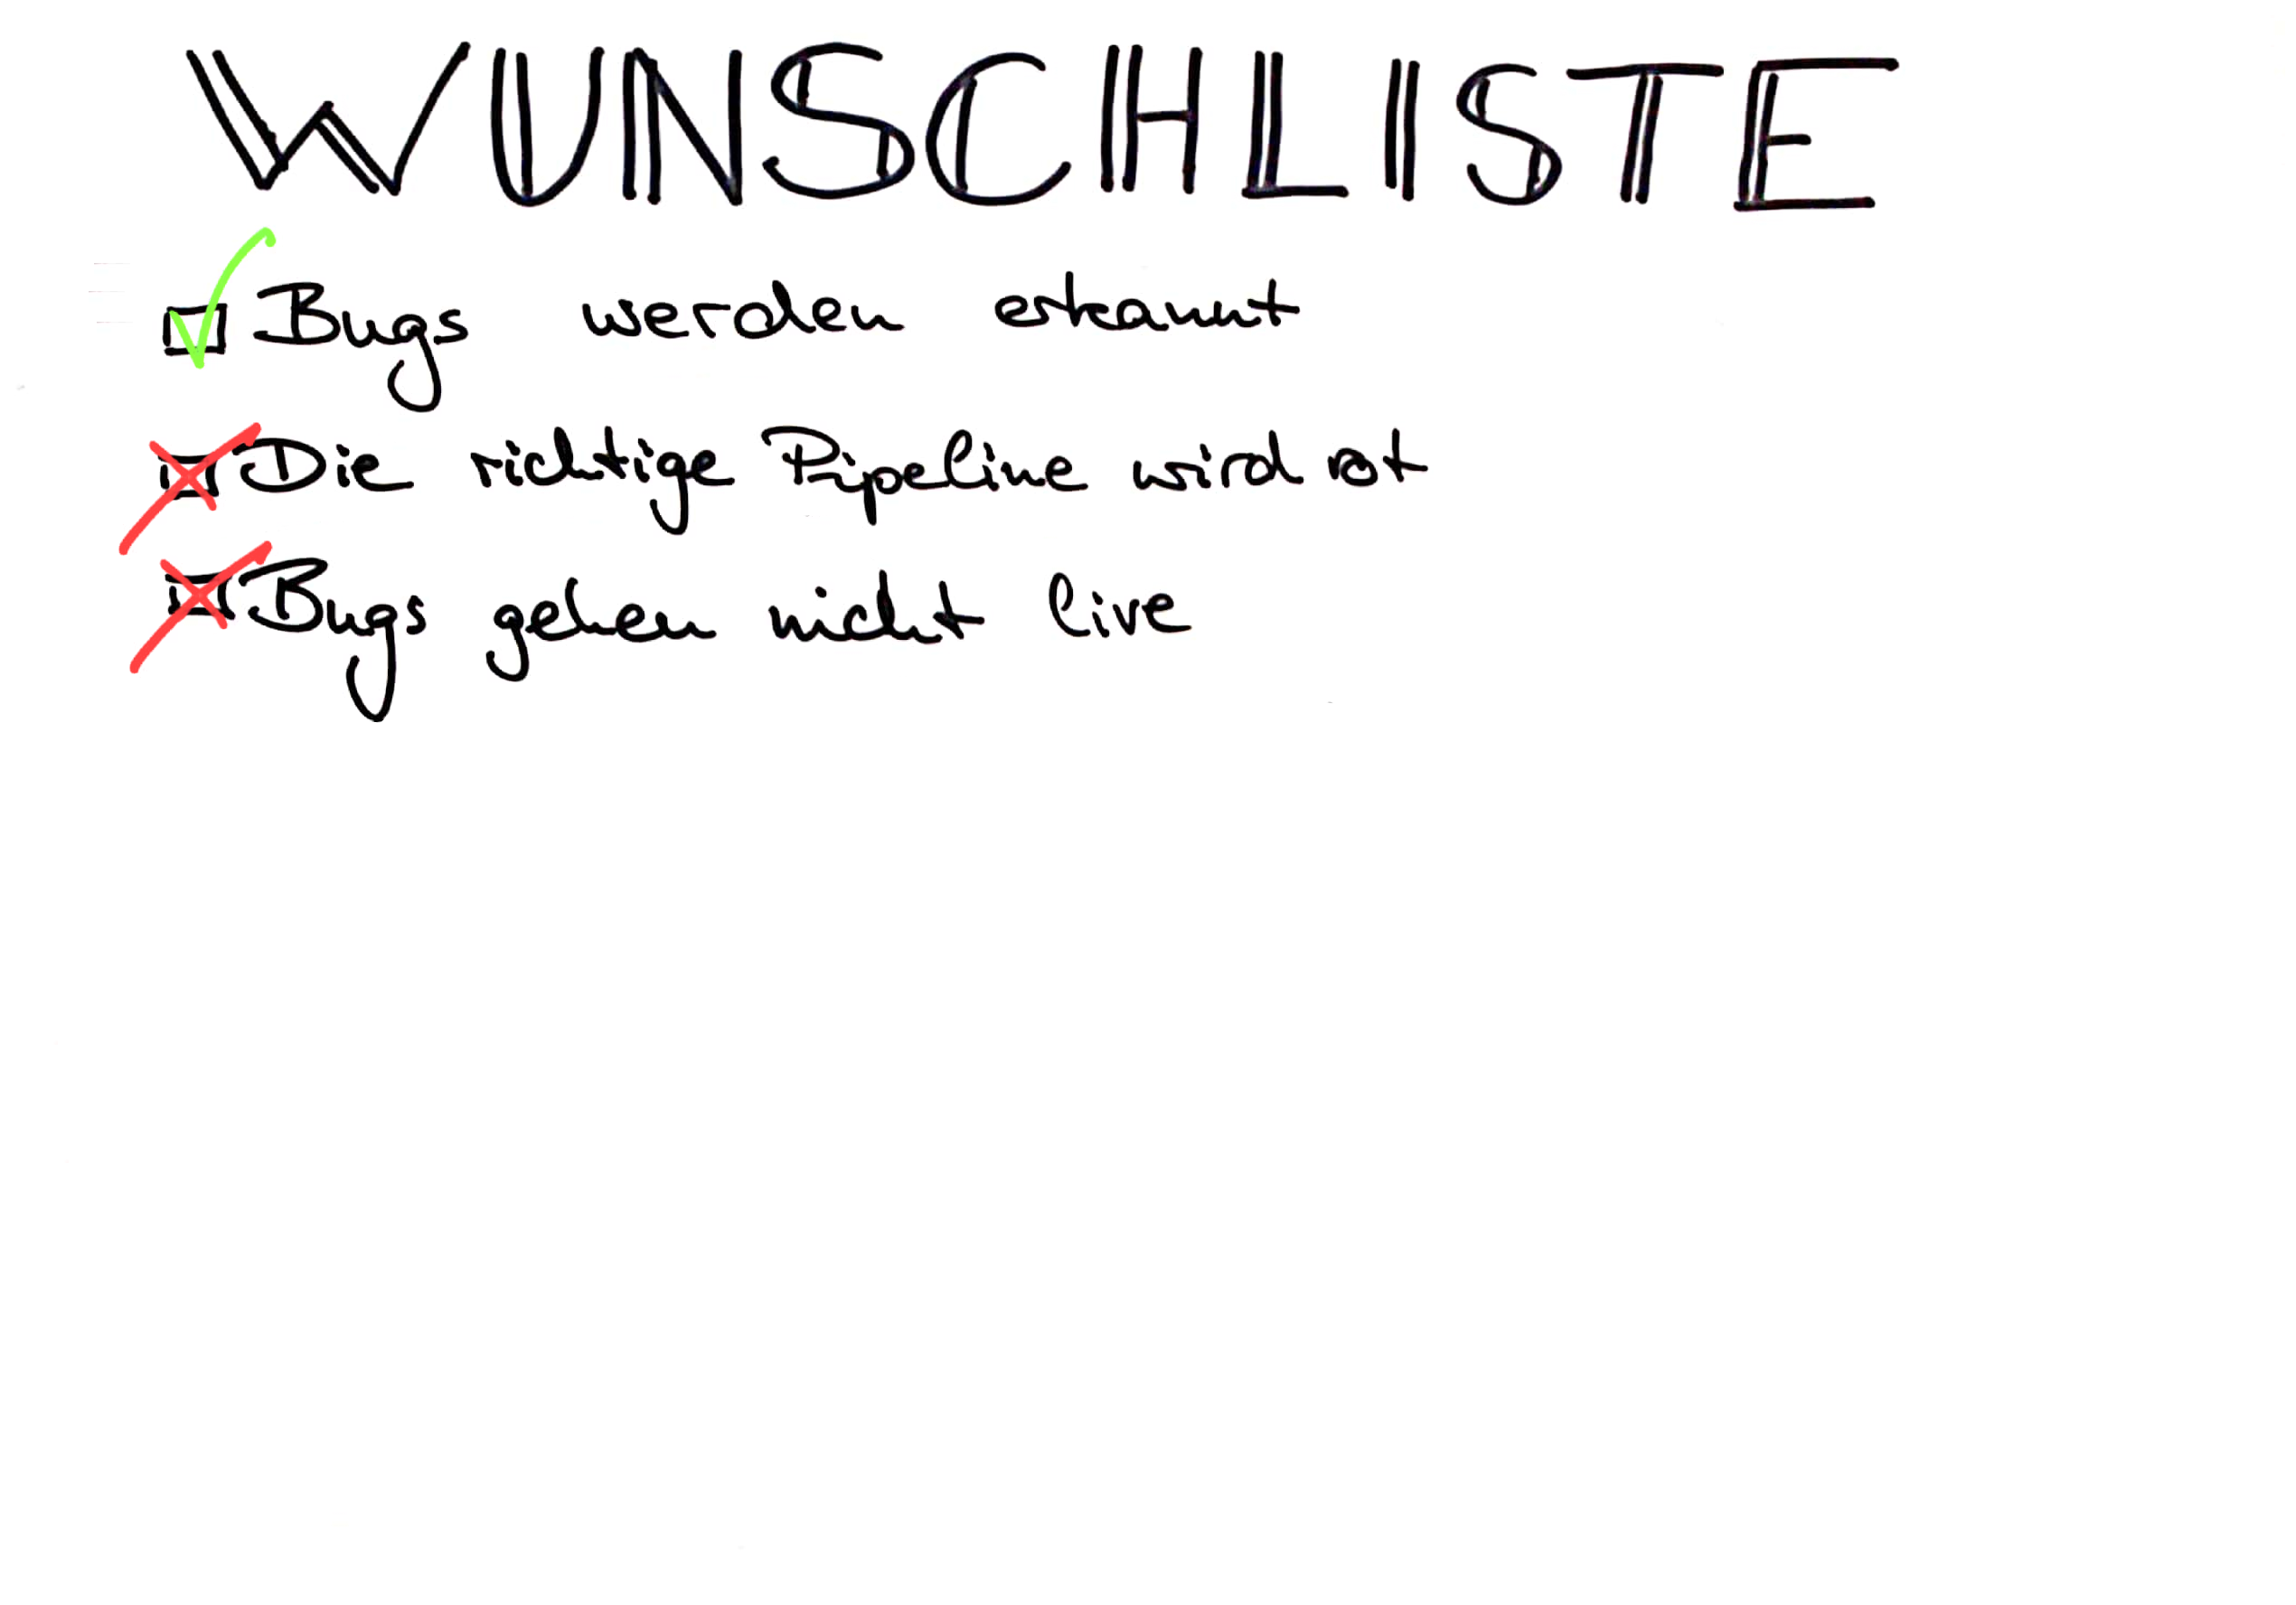 WUNSCHLISTE
Bugs werden erkannt
Die richtige Pipeline wird rot
Bugs gehen nicht live